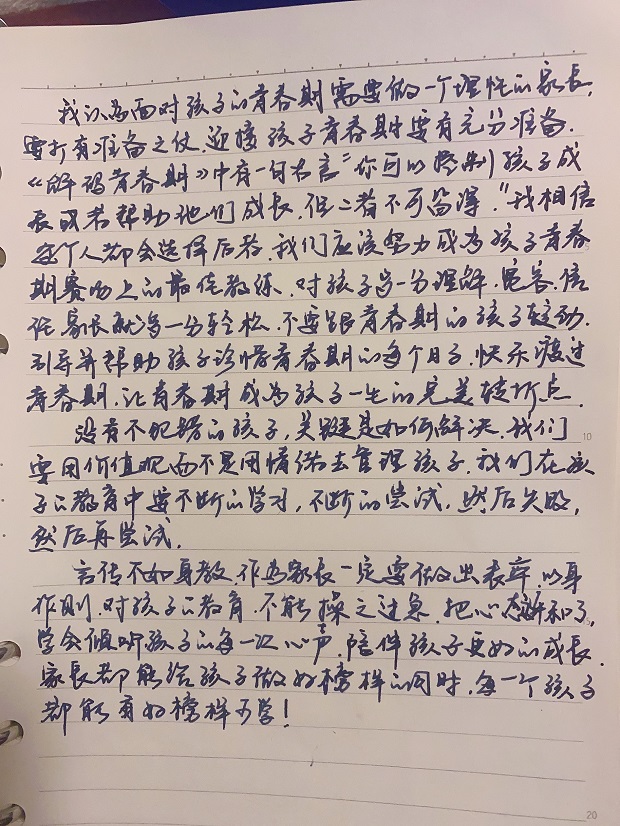 我认为面对孩子的青春期需要做一个理性的家长,
要打有准备之仗.迎接孩子青春期要有充分准备.
《解码青春期》中有一句名言"你可以控制孩子成
长或者帮助他们成长,但二者不可兼得."我相信
每个人都会选择后者.我们应该努力成为孩子青春
期赛场上的最佳教练.对孩子多一分理解.宽容.信
任家长就多一分轻松.不要跟青春期的孩子较劲.
引导并帮助孩子珍惜青春期的每个日子.快乐渡过
青春期.让青春期成为孩子一生的完美转折点.
没有不犯错的孩子,关键是如何解决.我们
要用价值观而不是用情绪去管理孩子.我们在孩
子的教育中要不断的学习,不断的尝试.然后失败,
然后再尝试.
言传不如身教.作为家长一定要做出表率.以身
作则.对孩子的教育.不能操之过急.把心态放和了.
学会倾听孩子的每一次心声.陪伴孩子更好的成长.
家长都能给孩子做好榜样的同时.每一个孩子
都能有好榜样可学!
10
20